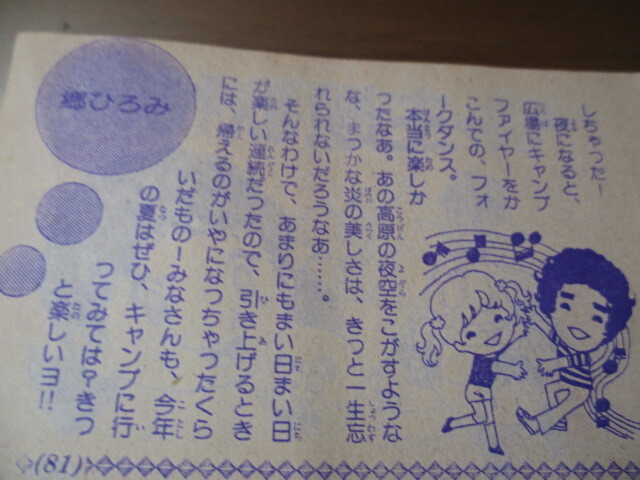 しちゃった！
夜になると、
広場にキャンプ
ファイヤーをか
こんでの、フォ
ークダンス。
本当に楽しか
ったなあ。あの高原の夜空をこがすような
な、まっかな炎の美しさは、きっと一生忘
れられないだろうなあ……。
そんなわけで、あまりにもまい日まい日
が楽しい連続だったので、引き上げるとき
には、帰えるのがいやになっちゃったくら
いだもの！みなさんも、今年
の夏はぜひ、キャンプに行
ってみては？きっ
と楽しいヨ!!
郷ひろみ
(81)